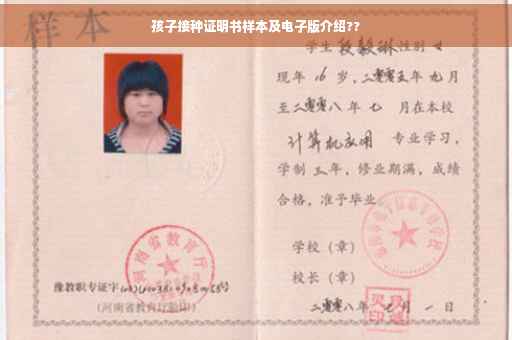 孩子接种证明书样本及电子版介绍??
样本
学生段毅琳性别女
现年16岁,二零零五年九月
至二零零八年七月在本校
计算机应用 专业学习,
学制三年,修业期满,成绩
合格,准予毕业
学校(章)
校长(章)
二零零八年七月一日
河南省教育厅
豫教职专证字
(河南省教育厅验印)